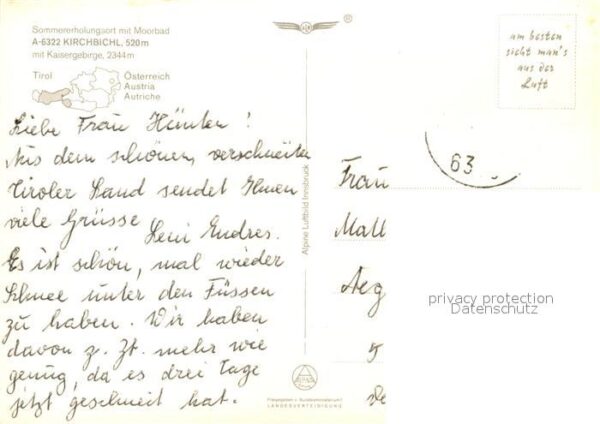 Sommererholungsort mit Moorbad
A-6322 KIRCHBICHL, 520m
mit Kaisergebirge, 2344m
Tirol
Österreich
Austria
Autriche
®
am besten
sieht man's
aus der
Luft
Liebe Frau !
Aus dem schönen, verschneiten
Tiroler Land sendet Ihnen
viele Grüsse
Leni Endres.
Es ist schön, mal wieder
Schnee unter den Füssen
zu haben. Wir haben
davon z. Zt. mehr wie
genug, da es drei Tage
jetzt geschneit hat.
Alpine Luftbild Innsbruck
Freigegeben v. Bundesministerium f.
LANDESVERTEIDIGUNG
63
Frau
Math
Aeg
5
privacy protection
Datenschutz